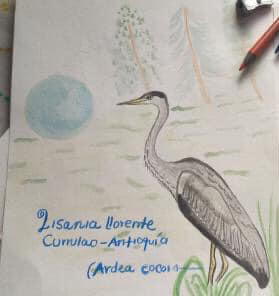 Lisania llorente
Currulao-Antioquia
(Ardea cocoi